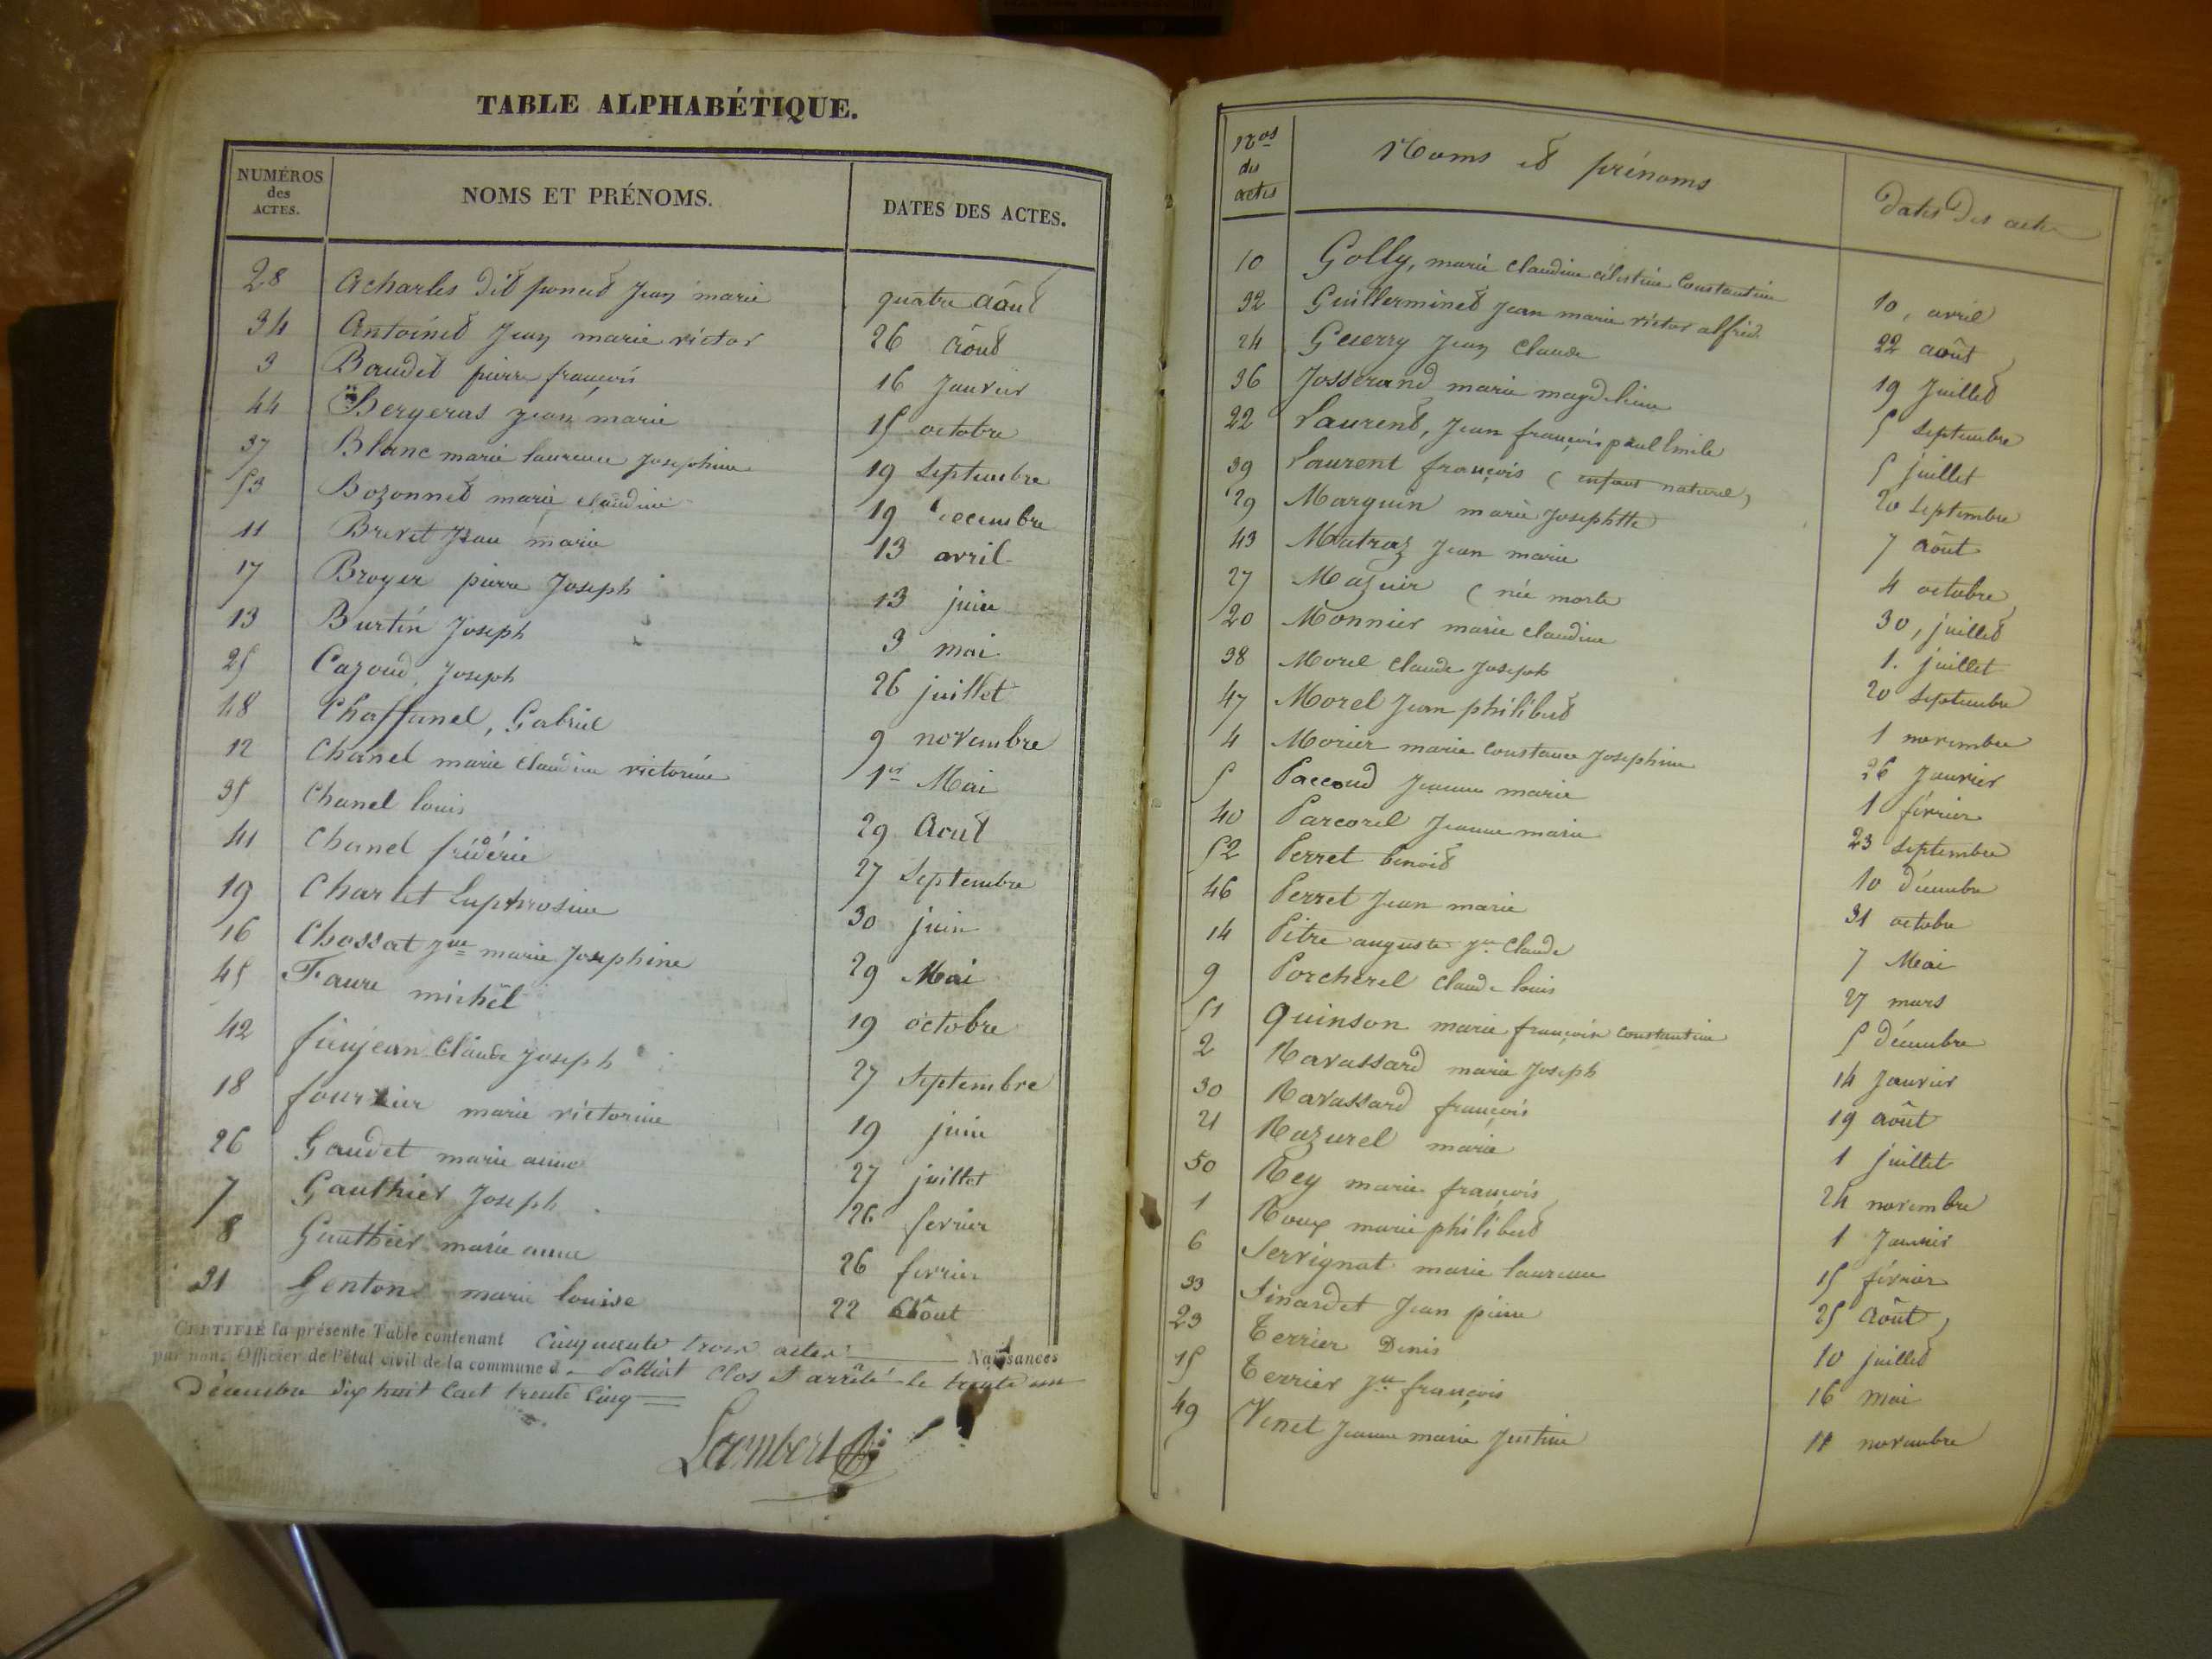 TABLE ALPHABÉTIQUE.
NUMÉROS des ACTES. NOMS ET PRÉNOMS. DATES DES ACTES.
28 Acharles dit poncet Jean marie quatre Août
34 Antoinet Jean marie victor 26 Août
3 Baudet pierre françois 16 Janvier
44 Bergeras jean marie 15 octobre
37 Blanc marie laurence Josephine 19 septembre
53 Bozonnet marie claudine 19 decembre
11 Brevet Jean marie 13 avril
17 Broyer pierre Joseph 13 juin
13 Burtin Joseph 3 mai
25 Cazoud, Joseph 26 juillet
48 Chaffanel, Gabriel 9 novembre
12 Chanel marie Claudine victorine 1er Mai
35 Chanel louis 29 Aout
41 Chanel fréderic 27 Septembre
19 Charlet Euphrosine 30 juin
16 Chossat Jne marie Josephine 29 Mai
45 Faure michel 19 octobre
42 fieujean Claude Joseph 27 Septembre
18 fournier marie victorine 19 juin
26 Gaudet marie anne 27 juillet
7 Gauthier Joseph 26 fevrier
8 Gauthier marie anne 26 fevrier
31 Genton marie louise 22 Août
CERTIFIÉ la présente Table contenant cinquante trois actes Naissances
par nous Officier de l'état civil de la commune de Polliat Clos et arrêté le trente un
Décembre dix huit cent trente cinq
Lambert
Nos des actes Noms et prénoms Dates des actes
10 Golly, marie claudine célestine Constantine 10, avril
32 Guillerminet Jean marie victor alfred 22 août
24 Guerry Jean Claude 19 Juillet
36 Josserand marie magdeleine 5 septembre
22 Laurent, Jean françois paul Emile 5 juillet
39 Laurent françois (enfant naturel) 20 septembre
29 Marguin marie Josephtte 7 août
43 Matraz Jean marie 4 octobre
27 Mazuir (née morte 30, juillet
20 Monnier marie claudine 1. juillet
38 Morel claude Joseph 20 septembre
47 Morel Jean philibert 1 novembre
4 Morier marie Constance Josephine 26 Janvier
5 Paccoud Jeanne marie 1 février
40 Parcorel Jeanne marie 23 septembre
52 Perret benoit 10 décembre
46 Perret Jean marie 31 octobre
14 Pitre auguste Jn Claude 7 Mai
9 Porcherel Claude louis 27 mars
51 Quinson marie françoise Constantine 5 décembre
2 Ravassard marie Joseph 14 Janvier
30 Ravassard françois 19 août
21 Razurel marie 1 juillet
50 Rey marie françois 24 novembre
1 Roux marie philibert 1 Janvier
6 Servignat marie laurence 15 février
33 Sinardet Jean pierre 25 Août
23 Terrier Denis 10 juillet
15 Terrier Jn françois 16 mai
49 Venet Jeanne marie Justine 11 novembre